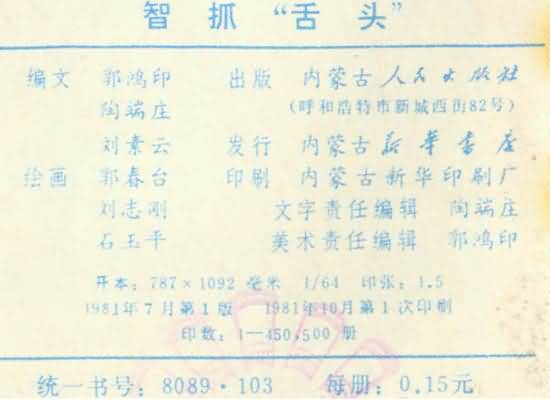 智抓“舌头”
编文 郭鸿印 出版 内蒙古人民出版社
陶端庄 (呼和浩特市新城西街82号)
刘素云 发行 内蒙古新华书店
绘画 郭春台 印刷 内蒙古新华印刷厂
刘志刚 文字责任编辑 陶端庄
石玉平 美术责任编辑 郭鸿印
开本: 787×1092 毫米 1/64 印张: 1.5
1981年7月第1版 1981年10月第1次印刷
印数: 1—450,500 册
统一书号: 8089·103 每册: 0.15元